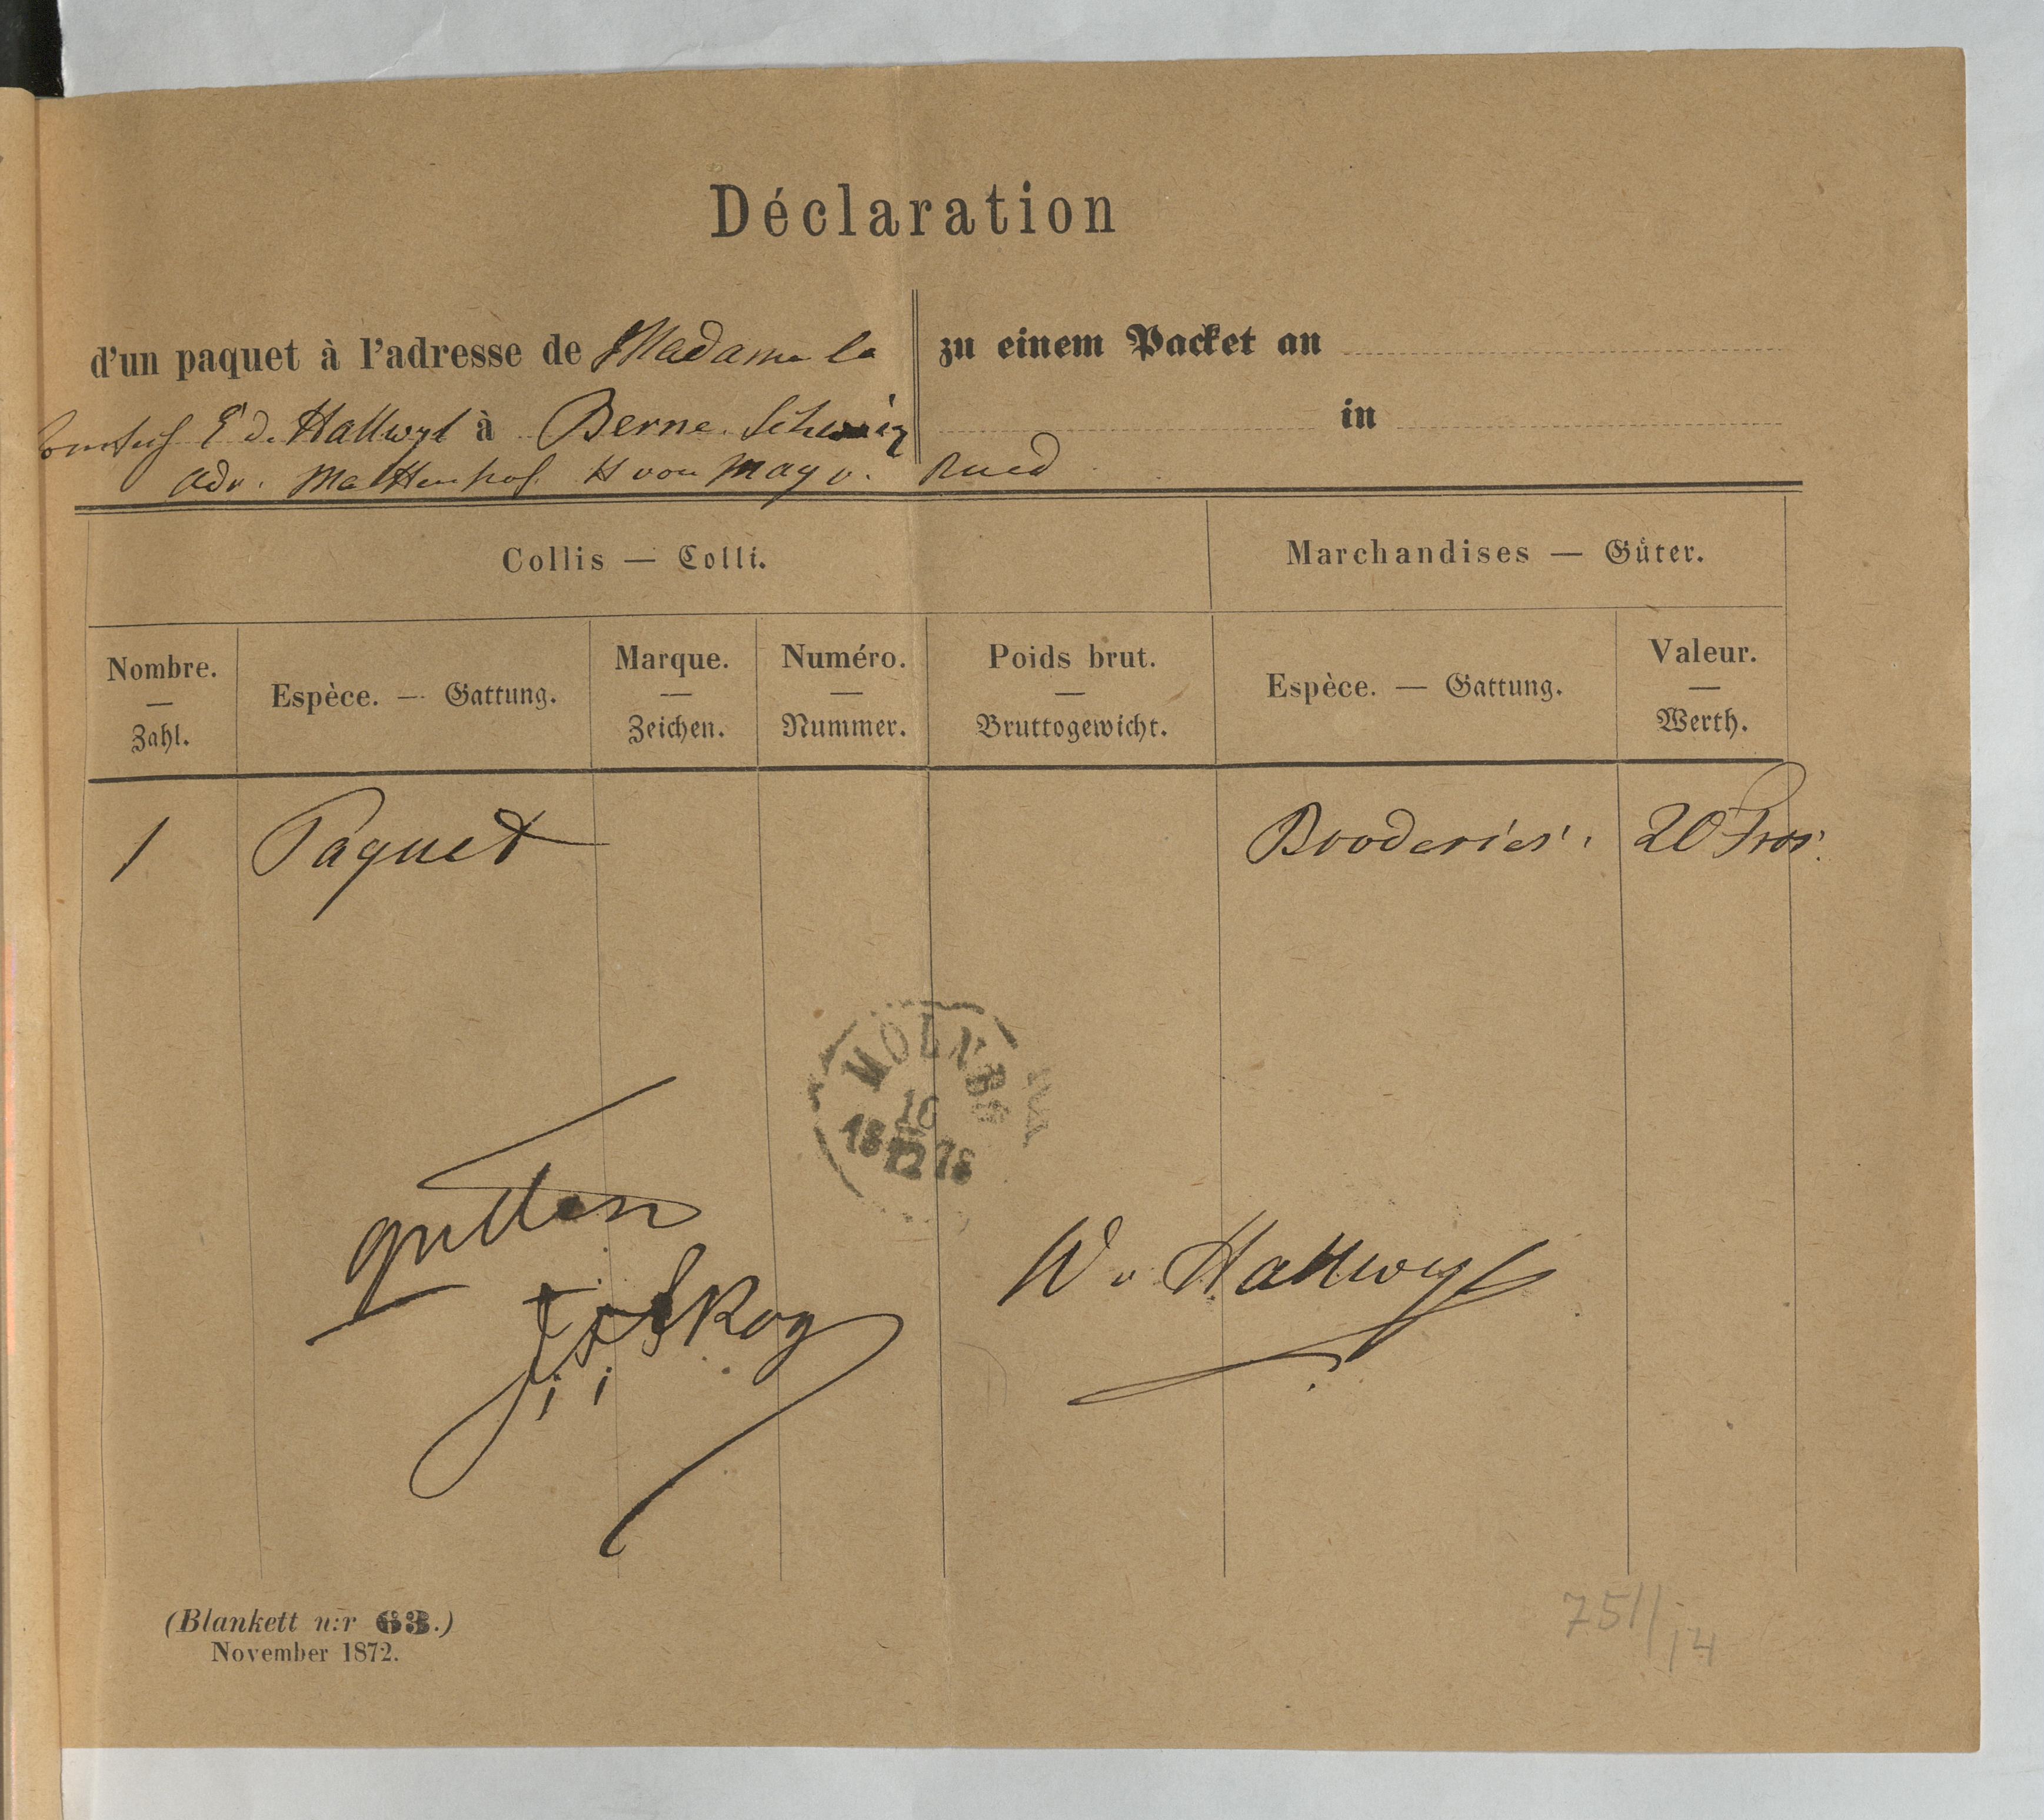 Déclaration
d'un paquet à l'adresse de Madame la
Comtesse E de Hallwyl à Berne. Schweiz
adr. Mattenhof. H von May v. Rued
zu einem Packet an
in
Collis — Colli.
Marchandises — Güter.
Nombre. — Zahl.
Espèce. — Gattung.
Marque. — Zeichen.
Numéro. — Nummer.
Poids brut. — Bruttogewicht.
Espèce. — Gattung.
Valeur. — Werth.
1 Paquet Broderies. 20 Frcs.
MOLNBO
16
12
18 78
W. v Hallwyl
Skog
(Blankett n:r 63.)
November 1872.
751/14